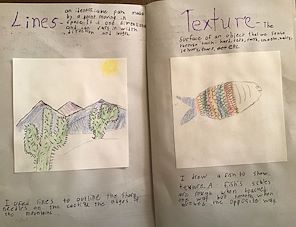 Lines- an identifiable path made
by a point moving in
space. It is one dimensional
and can vary in width,
direction and length
I used lines to outline the sharp
needles on the cactus the edges of
the mountains.
Texture- The
surface of an object that we sense
through touch. hard, soft, smooth, hairy,
leathery, etc.
I draw a fish to show
texture. A fish's scales
are rough when touched
one way but smooth when
opposite way.